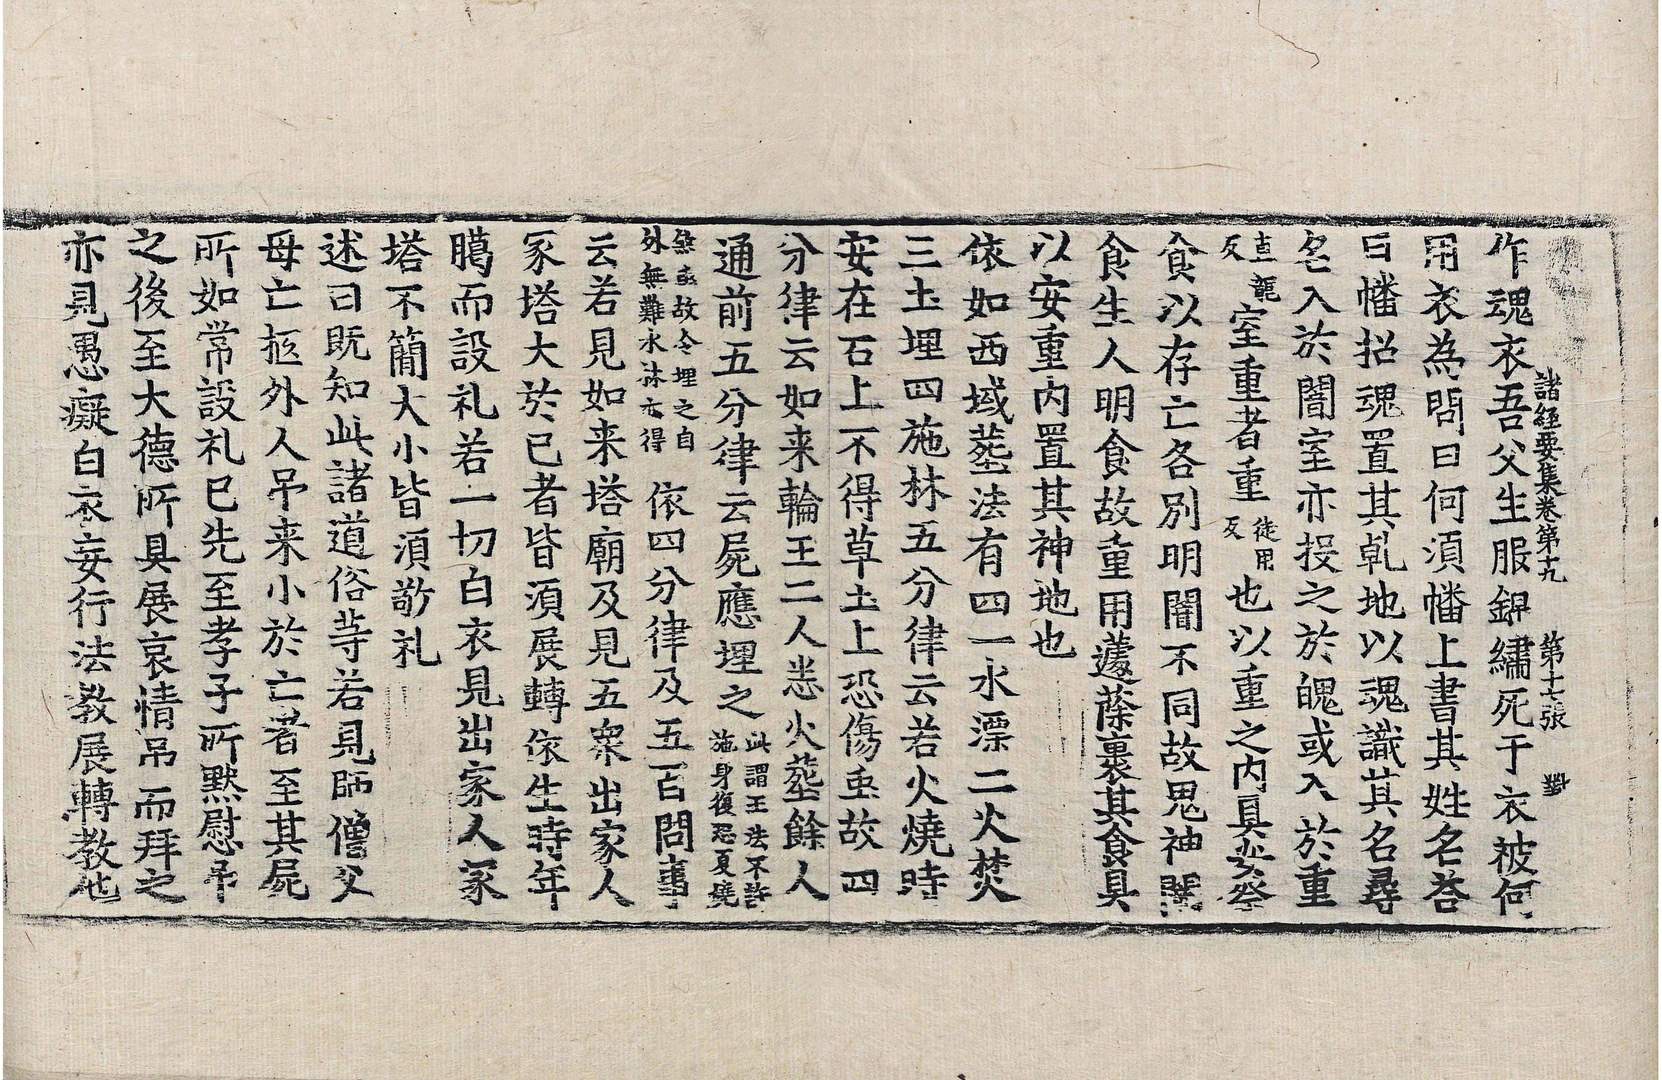 諸經要集卷第十九 第十七張 對
作魂衣吾父生服錦繡死于衣被何
用衣為問曰何須幡上書其姓名荅
曰幡招魂置其乹地以魂識其名尋
名入於闇室亦投之於魄或入於重
直龍反室重者重徒用反也以重之內具安祭
食以存亡各別明闇不同故鬼神闇
食生人明食故重用蘧蒢裹其食具
以安重內置其神地也
依如西域𦵏法有四一水漂二火焚
三土埋四施林五分律云若火燒時
安在石上不得草土上恐傷虫故四
分律云如来輪王二人悉火𦵏餘人
通前五分律云屍應埋之此謂王法不許施身復恐夏燒
煞虫故令埋之自外無難水林亦得 依四分律及五百問事
云若見如来塔廟及見五衆出家人
冢塔大於已者皆須展轉依生時年
臈而設礼若一切白衣見出家人冢
塔不簡大小皆須敬礼
述曰既知此諸道俗䓁若見師僧父
母亡柩外人吊来小於亡者至其屍
所如常設礼已先至孝子所默慰吊
之後至大德所具展哀情吊而拜之
亦見愚癡白衣妄行法教展轉教他